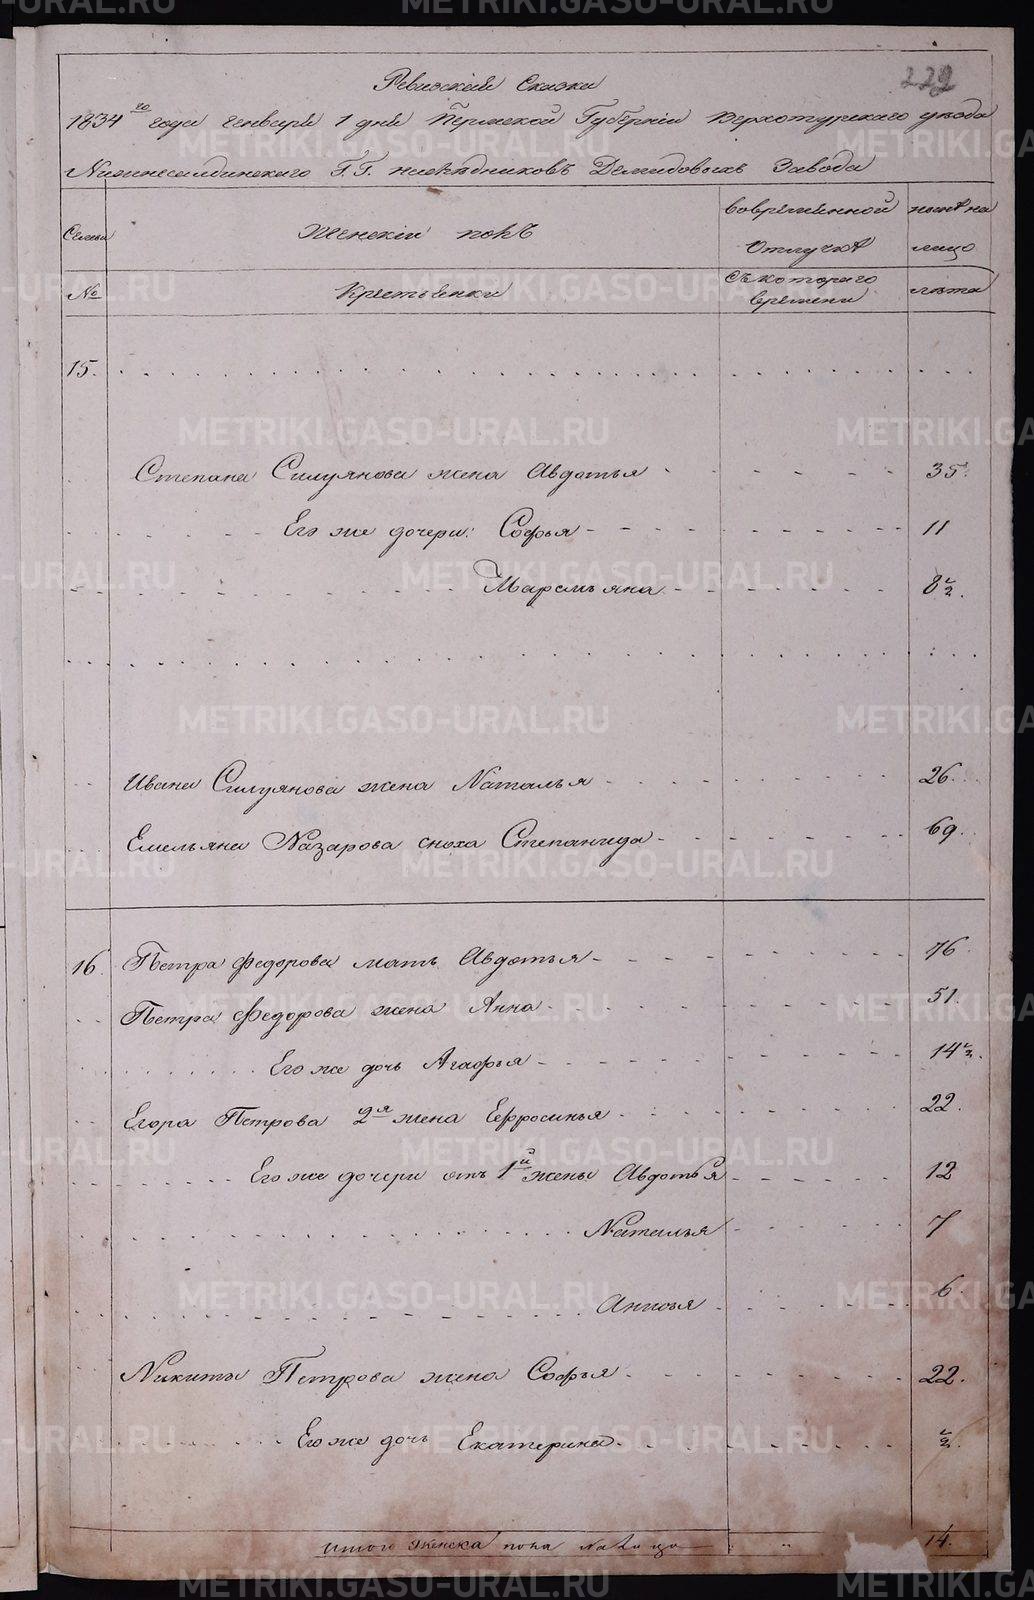 229
Ревизскія Сказка
1834го года Генваря 1 дня Пермской Губерніи Верхотурскаго уѣзда
Нижнесалдинскаго Г.Г. наслѣдниковъ Демидовыхъ Завода
Семьи Женскій полъ вовременной отлучкѣ ныне на лицо
№ Крестьянки съ котораго времени лѣта
15.
Степана Силуянова жена Авдотья 35.
Его же дочери: Софья 11
Маремьяна 8½.
Ивана Силуянова жена Наталья 26.
Емельяна Назарова сноха Степанида 69.
16. Петра Федорова мать Авдотья 76.
Петра Федорова жена Анна 51.
Его же дочь Агафья 14½.
Егора Петрова 2я жена Ефросинья 22.
Его же дочери отъ 1й жены Авдотья 12
Наталья 7
Анисья 6.
Никиты Петрова жена Софья 22.
Его же дочь Екатерина ½.
Итого Женска пола На Лицо " 14.
METRIKI.GASO-URAL.RU